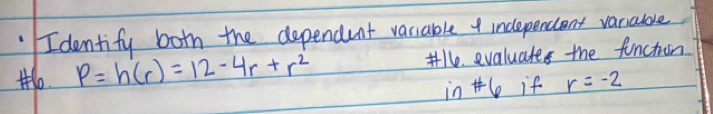 • Identify both the dependent variable & independent variable
#6. P = h(r) = 12 - 4r + r²
#16. evaluates the function
in #6 if r = -2